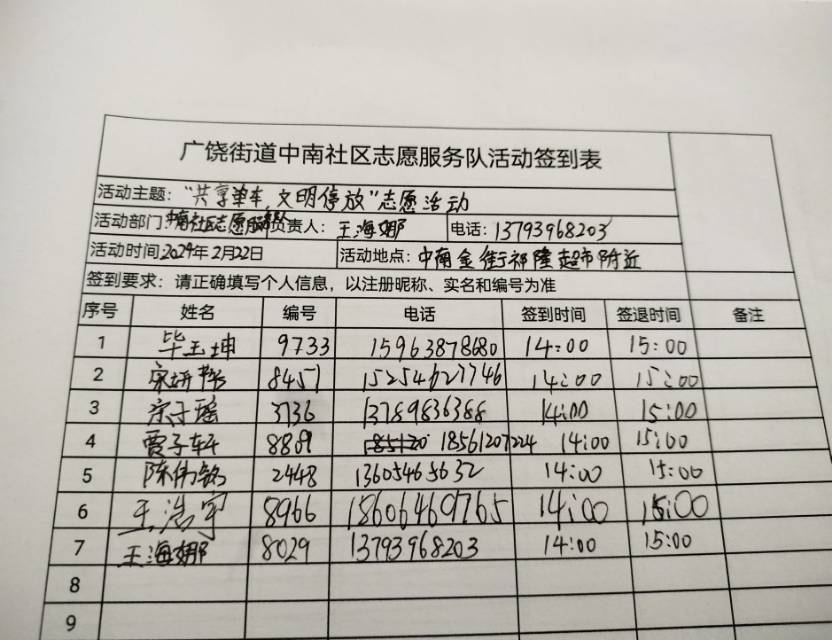 广饶街道中南社区志愿服务队活动签到表
活动主题：“共享单车,文明停放”志愿活动
活动部门:中南社区志愿服务队 负责人：王海娜 电话：13793968203
活动时间2024年2月22日 活动地点：中南金街祁隆超市附近
签到要求：请正确填写个人信息，以注册昵称、实名和编号为准
序号 姓名 编号 电话 签到时间 签退时间 备注
1 毕玉坤 9733 15963878680 14:00 15:00
2 8451 15254627746 14:00 15:00
3 宗子瑶 3736 13789836388 14:00 15:00
4 贾子轩 8809 18561207224 14:00 15:00
5 陈伟铭 2448 13605465632 14:00 15:00
6 王浩宇 8966 18606469765 14:00 15:00
7 王海娜 8029 13793968203 14:00 15:00
8
9